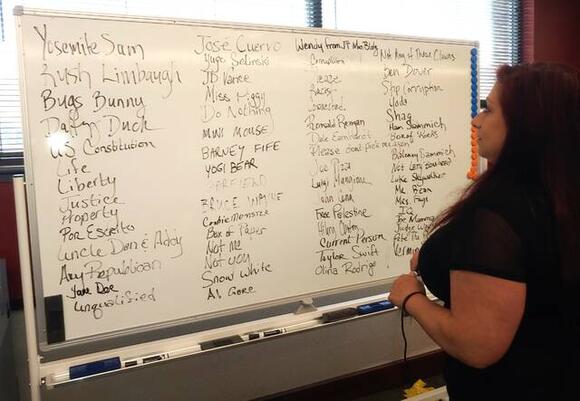 Yosemite Sam
Rush Limbaugh
Bugs Bunny
Daffy Duck
US Constitution
Life
Liberty
Justice
Property
Por Escrito
Uncle Dan & Addy
Any Republican
Jane Doe
unqualified
José Cuervo
JD Vance
Miss Piggy
Do Nothing
MINI MOUSE
BARNEY FIFE
YOGI BEAR
GARFIELD
BRUCE WAYNE
Cookie Monster
Box of
Not me
Not you
Snow White
AL Gore
Wendy from
Corruption
Racist
Ronald Reagan
Dale Earnhardt
Please don't pick me again
Joe
Luigi Mangione
John Cena
Free Palestine
Current Person
Taylor Swift
Olivia Rodrigo
Not Any of These Clowns
Ben Dover
Stop Corruption
Yoda
Shag
Ham Sammich
Box of Rocks
Baloney Sammich
Luke Skywalker
Mr. Bean
Mrs.
Joe
Judge